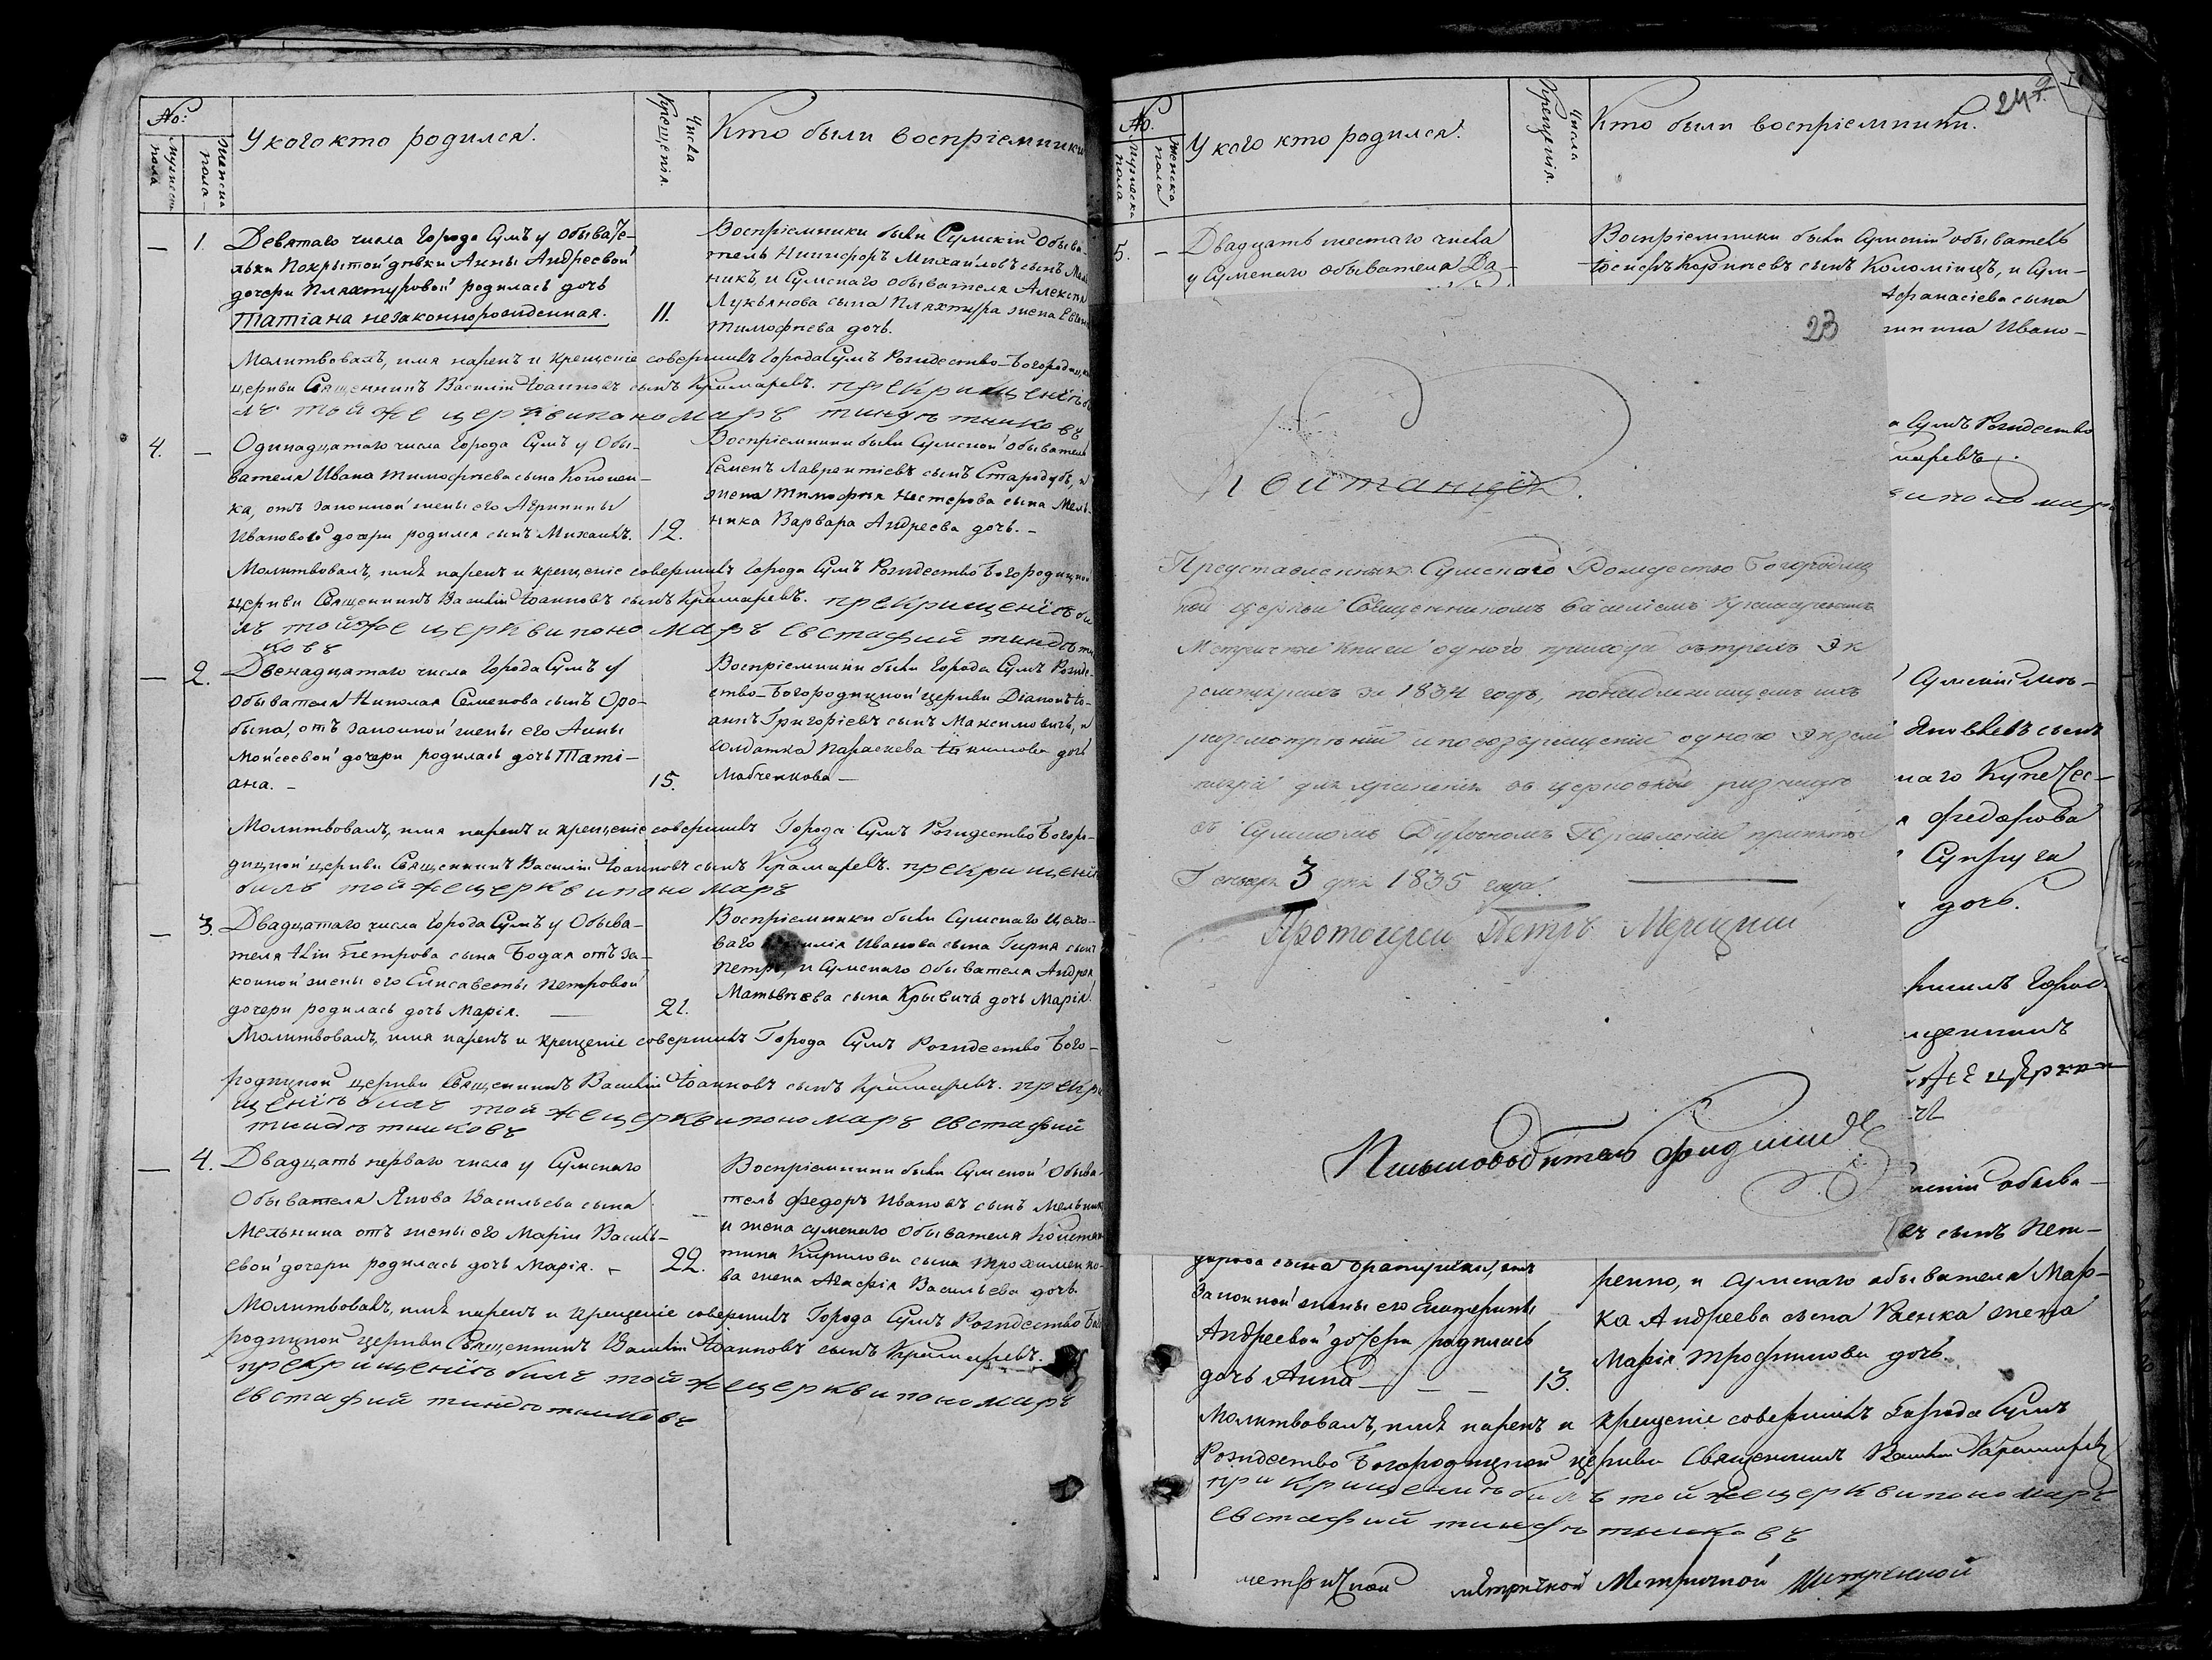 No:
Мужеска пола
Женска пола
У кого кто родился.
Числа Крещенія.
Кто были воспріемники
— 1. Девятаго числа Города Сумъ у Обывате-
льки Покрытой дѣвки Анны Андреевой
дочери Пляхтуровой родилась дочь
Татіана незаконнорожденная.
11.
Воспріемники были Сумскій Обыва-
тель Никифоръ Михайловъ сынъ
никъ, и Сумскаго обывателя Алексѣя
Лукьянова сына Пляхтура жена
Тимофѣева дочь.
Молитвовалъ, имя нареκъ и крещеніе совершилъ Города Сумъ Рождество-Богородич
церкви Священникъ Василій Іоанновъ сынъ Крамаревъ. прекрищеніѣ
лъ той же церкви пономаръ
4. — Одинадцатаго числа Города Сумъ у Обы-
вателя Ивана Тимофѣева сына Кононен-
ка, отъ законной жены его Агрипины
Ивановой дочери родился сынъ Михаилъ.
12.
Воспріемники были Сумской Обыватель
Семенъ Лаврентіевъ сынъ Стародубъ, и
жена Тимофѣя Нестерова сына Мель-
ника Варвара Андреева дочь. —
Молитвовалъ, имя нарекъ и крещеніе совершилъ Города Сумъ Рождество Богородично
церкви Священникъ Василій Іоанновъ сынъ Крамаревъ. прекрищеніѣ би
лъ тойже церкви пономаръ евстафий
ковъ
— 2. Двенадцатаго числа Города Сумъ у
Обывателя Николая Семенова сынъ Оро-
бына, отъ законной жены его Анны
Мойсеевой дочери родилась дочь Таті-
ана. —
15.
Воспріемники были Города Сумъ Рожде-
ство-Богородицкой церкви Діаконъ Іо-
аннъ Григоріевъ сынъ Максимовичъ, и
солдатка Параскева Іакимова дочь
—
Молитвовалъ, имя нарекъ и крещеніе совершилъ Города Сумъ Рождество Богоро-
дицкой церкви Священникъ Василій Іоанновъ сынъ Крамаревъ. прекрищеній
билъ той же церкви пономаръ
— 3. Двадцатаго числа Города Сумъ у Обыва-
теля Іліи Петрова сына Бодая отъ за-
конной жены его Елисаветы Петровой
дочери родилась дочь Марія. —
21.
Воспріемники были Сумскаго Цехо-
ваго Иванова сына Гирня сынъ
Петръ, и Сумскаго Обывателя Андрея
Матвѣева сына Крывича дочь Марія.
Молитвовалъ, имя нарекъ и крещеніе совершилъ Города Сумъ Рождество Бого-
родицкой церкви Священникъ Василій Іоанновъ сынъ Крамаревъ. прекри
щеніѣ билъ той же церкви пономаръ евстафий
— 4. Двадцать перваго числа у Сумскаго
Обывателя Якова Васильева сына
Мельника отъ жены его Маріи Василь-
евой дочери родилась дочь Марія. —
22.
Воспріемники были Сумской Обыва-
тель Федоръ Ивановъ сынъ Мельник
и жена сумскаго Обывателя Констан
тина Кирилова сына
ва жена Агафія Васильева дочь.
Молитвовалъ, имя нарекъ и крещеніе совершилъ Города Сумъ Рождество Бого
родицкой церкви Священникъ Василій Іоанновъ сынъ Крамаревъ.
прекрищеніѣ билъ той же церкви пономаръ
евстафий
24
No.
Мужеска пола
Женска пола
У кого кто родился.
Числа Крещенія.
Кто были воспріемники.
5. — Двадцать шестаго числа
у Сумскаго обывателя Да-
Воспріемники были Сумскій обыватель
Іосифъ сынъ Коломіецъ, и Сум-
Афанасіева сына
Ивано-
Сумъ Рождество
маревъ.
пономаръ
23
Квитанція.
Представленныхъ Сумскаго Рождество Богородиц
кой церкви Священникомъ Василіемъ
Метрическ Книги одного прихода въ трехъ Эк
земплярахъ за 1834 годъ, понадлежащемъ ихъ
разсмотрѣніи и по возвращеніи одного Экзем
пляра для храненія въ церковной ризницѣ
въ Сумскомъ Духовномъ Правленіи приняты
Генваря 3 дня 1835 года.
Протоиерей Петръ
Письмоводитель
Сумскій
Яковлевъ сынъ
наго Купечес-
Федорова
Супруга
дочь.
ршилъ Город
щенникъ
же церкви
обыва-
въ сынъ Пет-
сына отъ
Законной жены его Екатерины
Андреевой дочери родилась
дочь Анна — — —
13.
ренко, и Сумскаго обывателя Мар-
ка Андреева сына жена
Марія Трофимова дочь.
Молитвовалъ, имя нарекъ и крещеніе совершилъ Города Сумъ
Рождество Богородицкой церкви Священникъ Василій Крамаревъ
при крищениѣ билъ той же церкви пономаръ
евстафий
метричной метричной Метричной Метричной